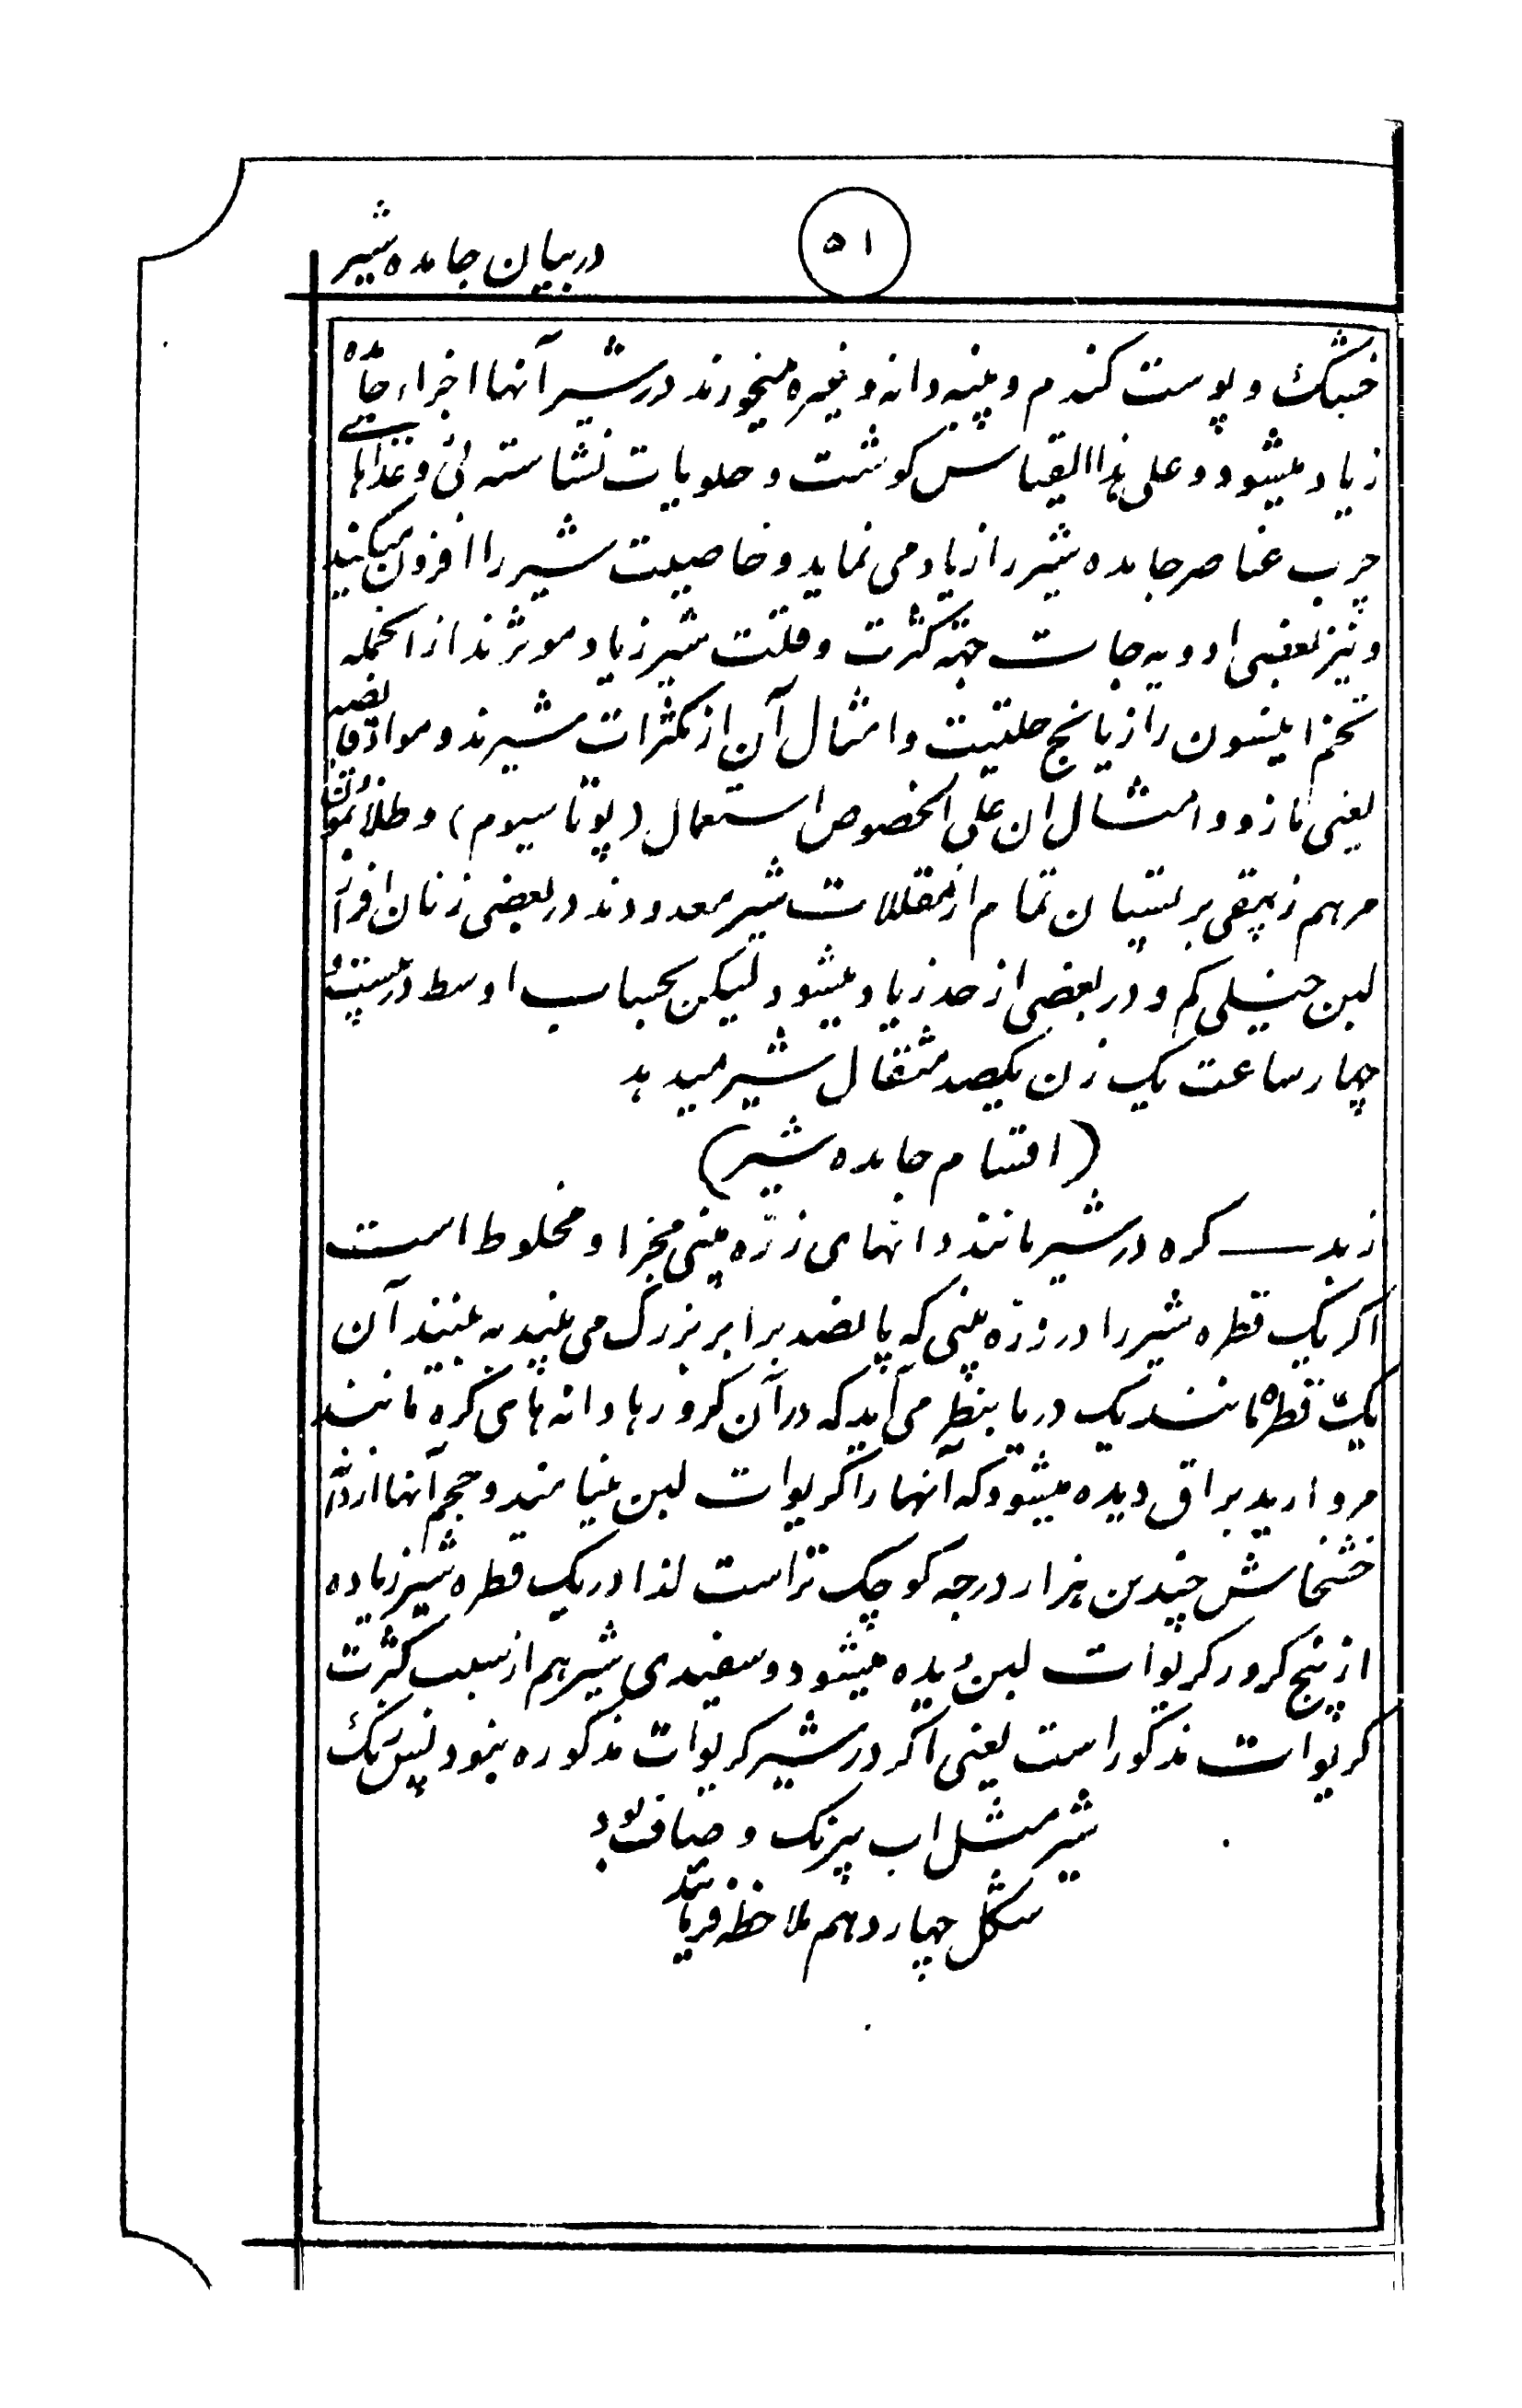 ۵۱
در بیان جامده شیر
خشک و پوست کندم و پنبه دانه و غیره میخورند در شیر آنها اجزاء جامده
زیاد میشود و علی هذا القیاس کوشت و حلویات نشاسته ئی و غذاهای
چرب عناصر جامده شیر را زیاد می نماید و خاصیت شیر را افزون میکنید
و نیز بعضی ادویه جات جهته کثرت و قلت شیر زیاد موثرند از انجمله
تخم انیسون رازیانج حلتیت و امثال آن از مکثرات شیرند و مواد قابضه
یعنی مازو و امثال ان علی الخصوص استعمال (پوتاسیوم) و طلا نمودن
مرهم زیبقی بر پستیان تمام از مقللات شیر معدودند در بعضی زنان افراز
لبن خیلی کم و در بعضی از حد زیاد میشود لیکن بحساب اوسط در بیست و
چهار ساعت یک زن یکصد مثقال شیر میدهد
(اقسام جامده شیر)
زبد — کره در شیر مانند دانهای زرّه بینی مجزا و مخلوط است
اکر یک قطره شیر را در زرّه بینی که پانصد برابر بزرک می بیند به بینند آن
یک قطره مانند یک دریا بنظر می آید که در آن کرورها دانه های کره مانند
مروارید براق دیده میشود که آنها را کریوات لبن مینامند و حجم آنها از دانه
خشخاش چندین هزار درجه کوچک تر است لذا در یک قطره شیر زیاده
از پنج کرور کریوات لبن دیده میشود و سفیدی شیر هم از سبب کثرت
کریوات مذکور است یعنی اکر در شیر کریوات مذکوره نبود پس رنک
شیر مثل اب بیرنک و صاف بود
شکل چهاردهم ملاحظه فرمایند